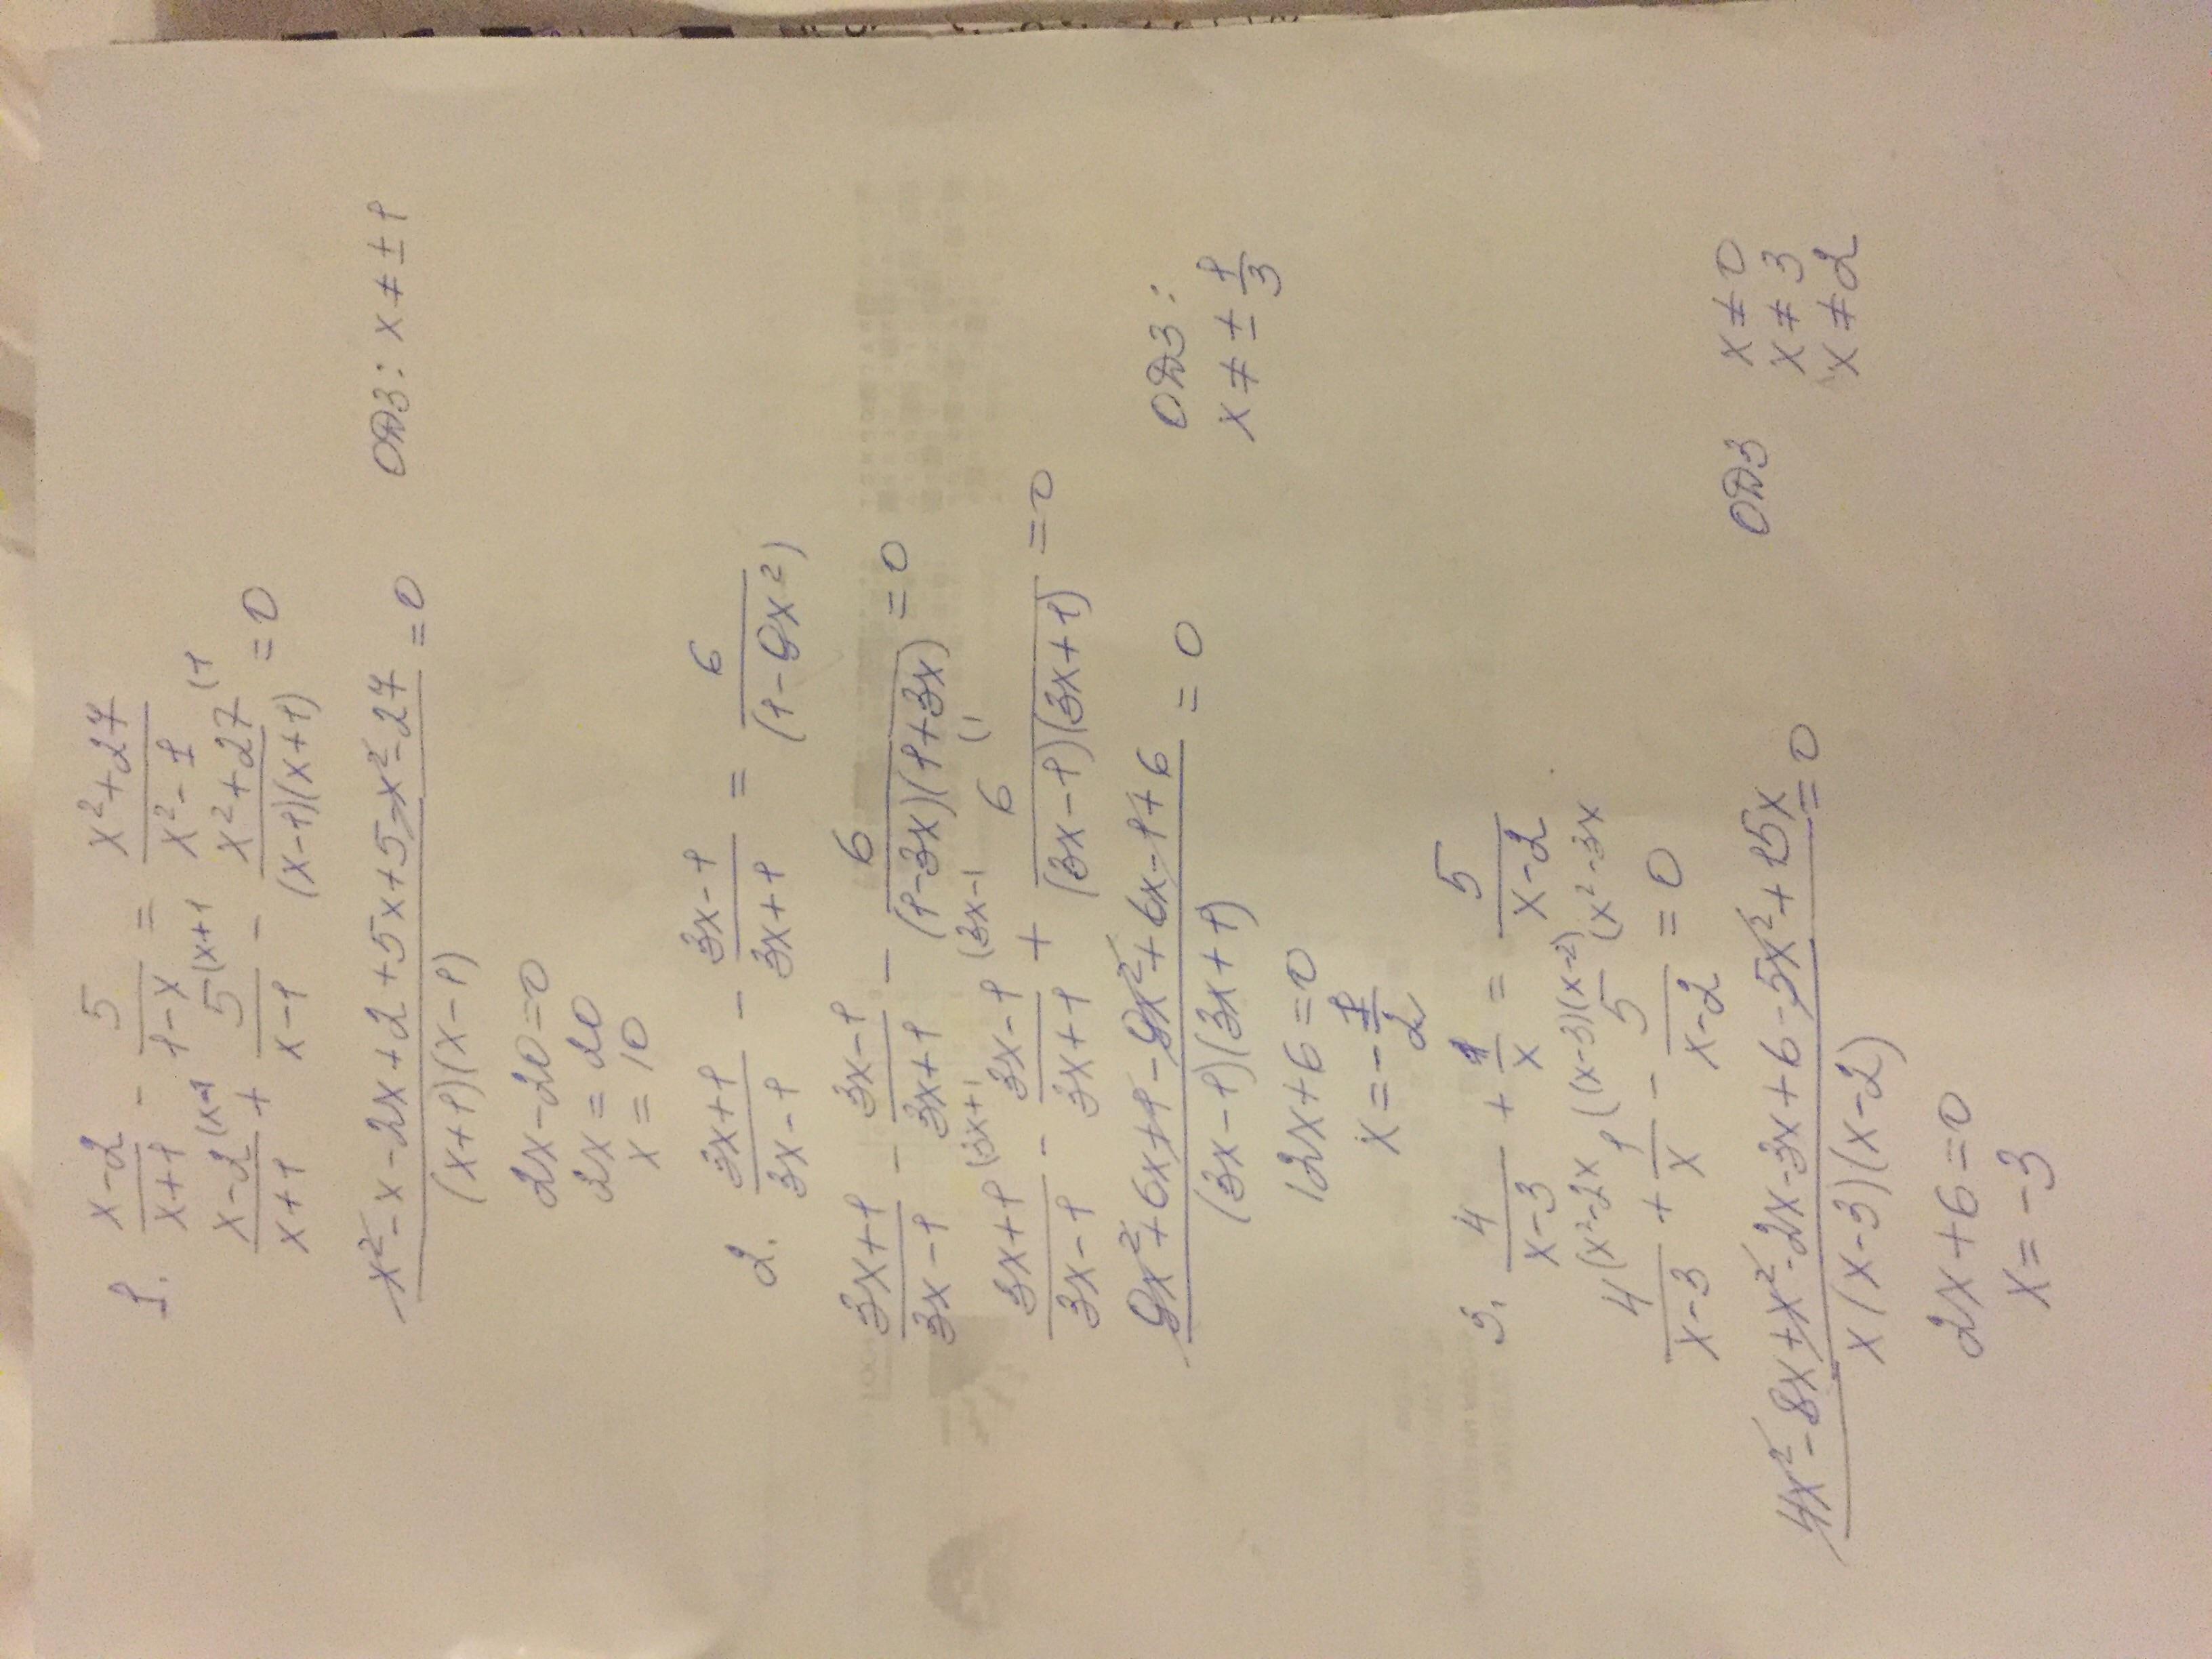 1. (x-2)/(x+1) - 5/(1-x) = (x²+27)/(x²-1)
(x-2)/(x+1) (x-1 + 5/(x-1) (x+1 - (x²+27)/((x-1)(x+1)) (1 = 0
(x²-x-2x+2+5x+5-x²-27)/((x+1)(x-1)) = 0 ОДЗ: x ≠ ±1
2x-20=0
2x=20
x=10
2. (3x+1)/(3x-1) - (3x-1)/(3x+1) = 6/(1-9x²)
(3x+1)/(3x-1) - (3x-1)/(3x+1) - 6/((1-3x)(1+3x)) = 0
(3x+1)/(3x-1) (3x+1 - (3x-1)/(3x+1) (3x-1 + 6/((3x-1)(3x+1)) (1 = 0
(9x²+6x+1-9x²+6x-1+6)/((3x-1)(3x+1)) = 0 ОДЗ:
x ≠ ±1/3
12x+6=0
x=-1/2
3. 4/(x-3) + 1/x = 5/(x-2)
4/(x-3) (x²-2x + 1/x ((x-3)(x-2) - 5/(x-2) (x²-3x = 0
(4x²-8x+x²-2x-3x+6-5x²+15x)/(x(x-3)(x-2)) = 0 ОДЗ x≠0
x≠3
x≠2
2x+6=0
x=-3